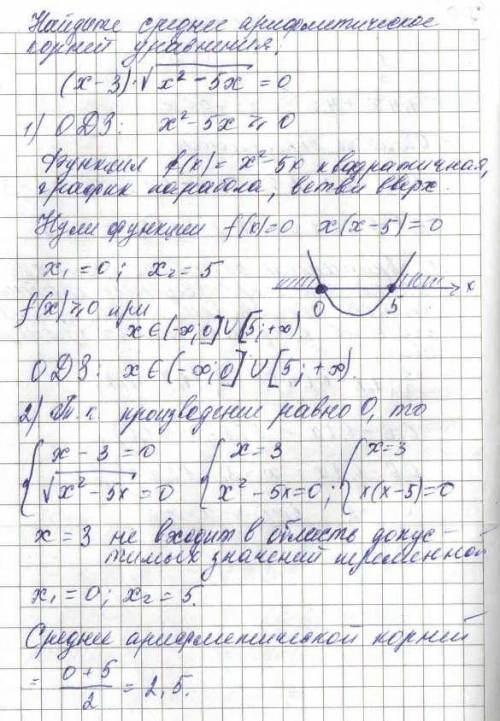 Найдите среднее арифметическое
корней уравнения:
(x-3)·√(x²-5x) = 0
1) ОДЗ: x²-5x ⩾ 0
Функция f(x)= x²-5x квадратичная,
график парабола, ветви вверх.
Нули функции f(x)=0 x(x-5)=0
x₁=0; x₂=5
f(x)⩾0 при
x∈(-∞;0]∪[5;+∞)
0 5 x
ОДЗ: x∈(-∞;0]∪[5;+∞).
2) Т.к. произведение равно 0, то
{ x-3=0 { x=3 { x=3
√(x²-5x)=0 x²-5x=0; x(x-5)=0
x=3 не входит в область допус-
тимых значений переменной
x₁=0; x₂=5.
Среднее арифметической корней
= (0+5)/2 = 2,5.